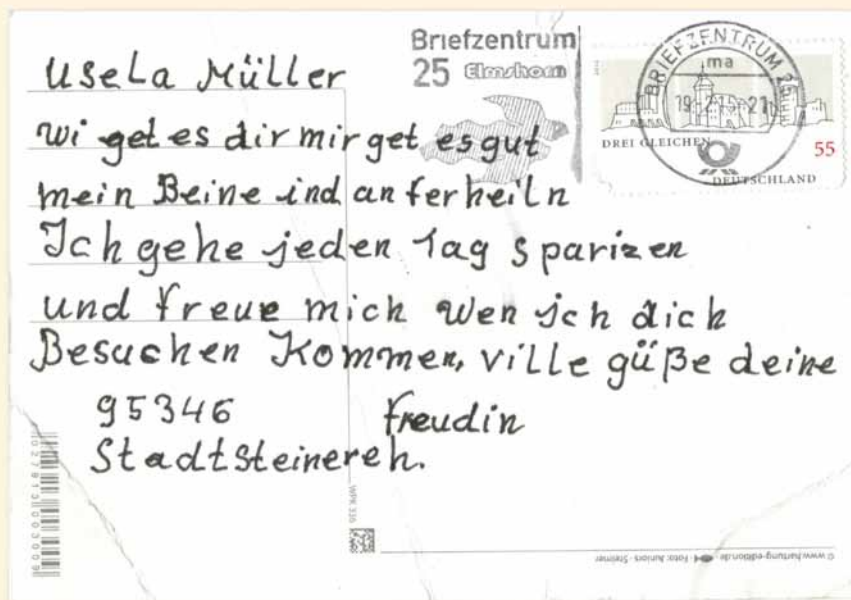 Briefzentrum
25 Elmshorn
BRIEFZENTRUM 25
ma
DREI GLEICHEN
55
DEUTSCHLAND
Usela Müller
wi get es dir mir get es gut
mein Beine ind an ferheiln
Ich gehe jeden Tag sparizen
und freue mich wen ich dich
Besuchen Kommen, ville güße deine
95346 freudin
Stadtsteinereh.
WPK 336
© www.hartung-edition.de · Foto: Juniors · Steimer